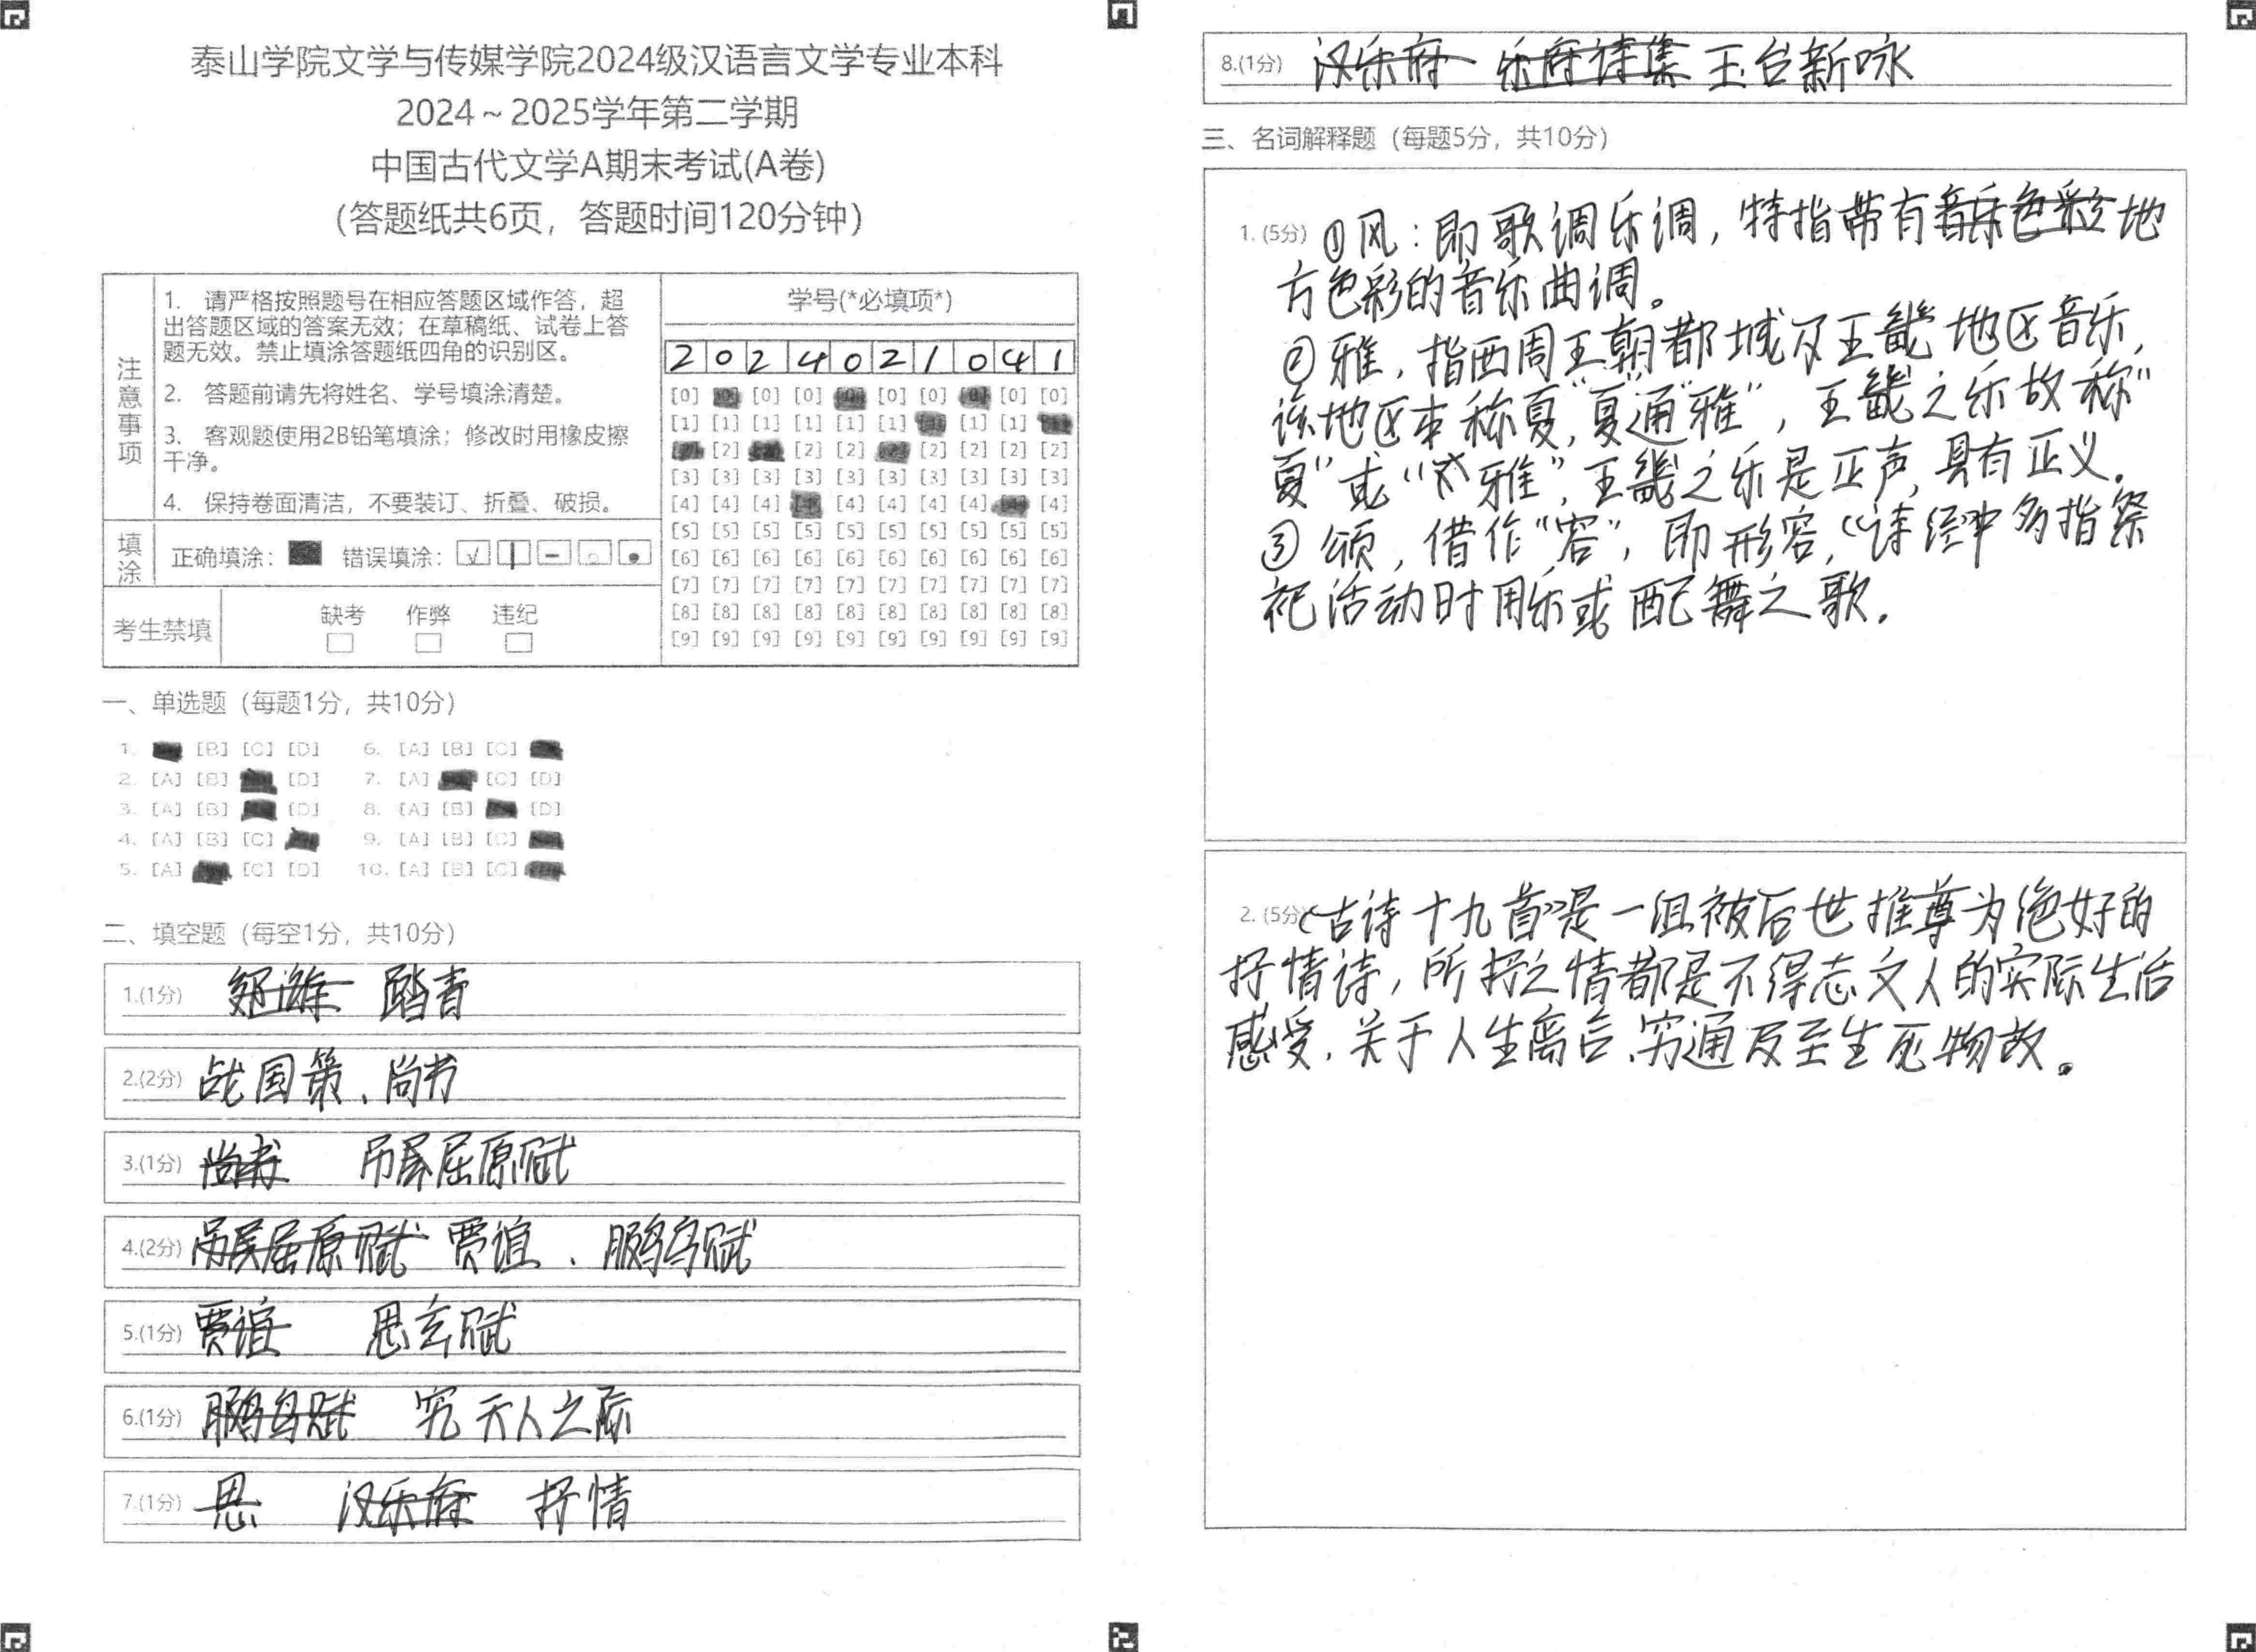 泰山学院文学与传媒学院2024级汉语言文学专业本科
2024～2025学年第二学期
中国古代文学A期末考试(A卷)
（答题纸共6页，答题时间120分钟）
注意事项
1. 请严格按照题号在相应答题区域作答，超
出答题区域的答案无效；在草稿纸、试卷上答
题无效。禁止填涂答题纸四角的识别区。
2. 答题前请先将姓名、学号填涂清楚。
3. 客观题使用2B铅笔填涂；修改时用橡皮擦
干净。
4. 保持卷面清洁，不要装订、折叠、破损。
填涂
正确填涂： 错误填涂：
考生禁填
缺考 作弊 违纪
学号(*必填项*)
2 0 2 4 0 2 1 0 4 1
[0] [0] [0] [0] [0] [0] [0]
[1] [1] [1] [1] [1] [1] [1] [1]
[2] [2] [2] [2] [2] [2] [2]
[3] [3] [3] [3] [3] [3] [3] [3] [3] [3]
[4] [4] [4] [4] [4] [4] [4] [4]
[5] [5] [5] [5] [5] [5] [5] [5] [5] [5]
[6] [6] [6] [6] [6] [6] [6] [6] [6] [6]
[7] [7] [7] [7] [7] [7] [7] [7] [7] [7]
[8] [8] [8] [8] [8] [8] [8] [8] [8] [8]
[9] [9] [9] [9] [9] [9] [9] [9] [9] [9]
一、单选题（每题1分，共10分）
1. [B] [C] [D] 6. [A] [B] [C]
2. [A] [B] [D] 7. [A] [C] [D]
3. [A] [B] [D] 8. [A] [B] [D]
4. [A] [B] [C] 9. [A] [B] [C]
5. [A] [C] [D] 10. [A] [B] [C]
二、填空题（每空1分，共10分）
1.(1分) 踏青
2.(2分) 战国策、尚书
3.(1分) 尚书 吊屈原赋
4.(2分) 吊屈原赋 贾谊、鵩鸟赋
5.(1分) 贾谊 思玄赋
6.(1分) 鵩鸟赋 究天人之际
7.(1分) 思 汉乐府 抒情
8.(1分) 汉乐府 乐府诗集 玉台新咏
三、名词解释题（每题5分，共10分）
1. (5分) ①风：即歌调乐调，特指带有音乐色彩地
方色彩的音乐曲调。
②雅，指西周王朝都城及王畿地区音乐，
该地区本称夏，“夏”通“雅”，王畿之乐故称“
夏”或“雅”，王畿之乐是正声，具有正义。
③颂，借作“容”，即形容，《诗经》中多指祭
祀活动时用乐或配舞之歌.
2. (5分)《古诗十九首》是一组被后世推尊为绝好的
抒情诗，所抒之情都是不得志文人的实际生活
感受，关于人生离合、穷通及至生死物故。